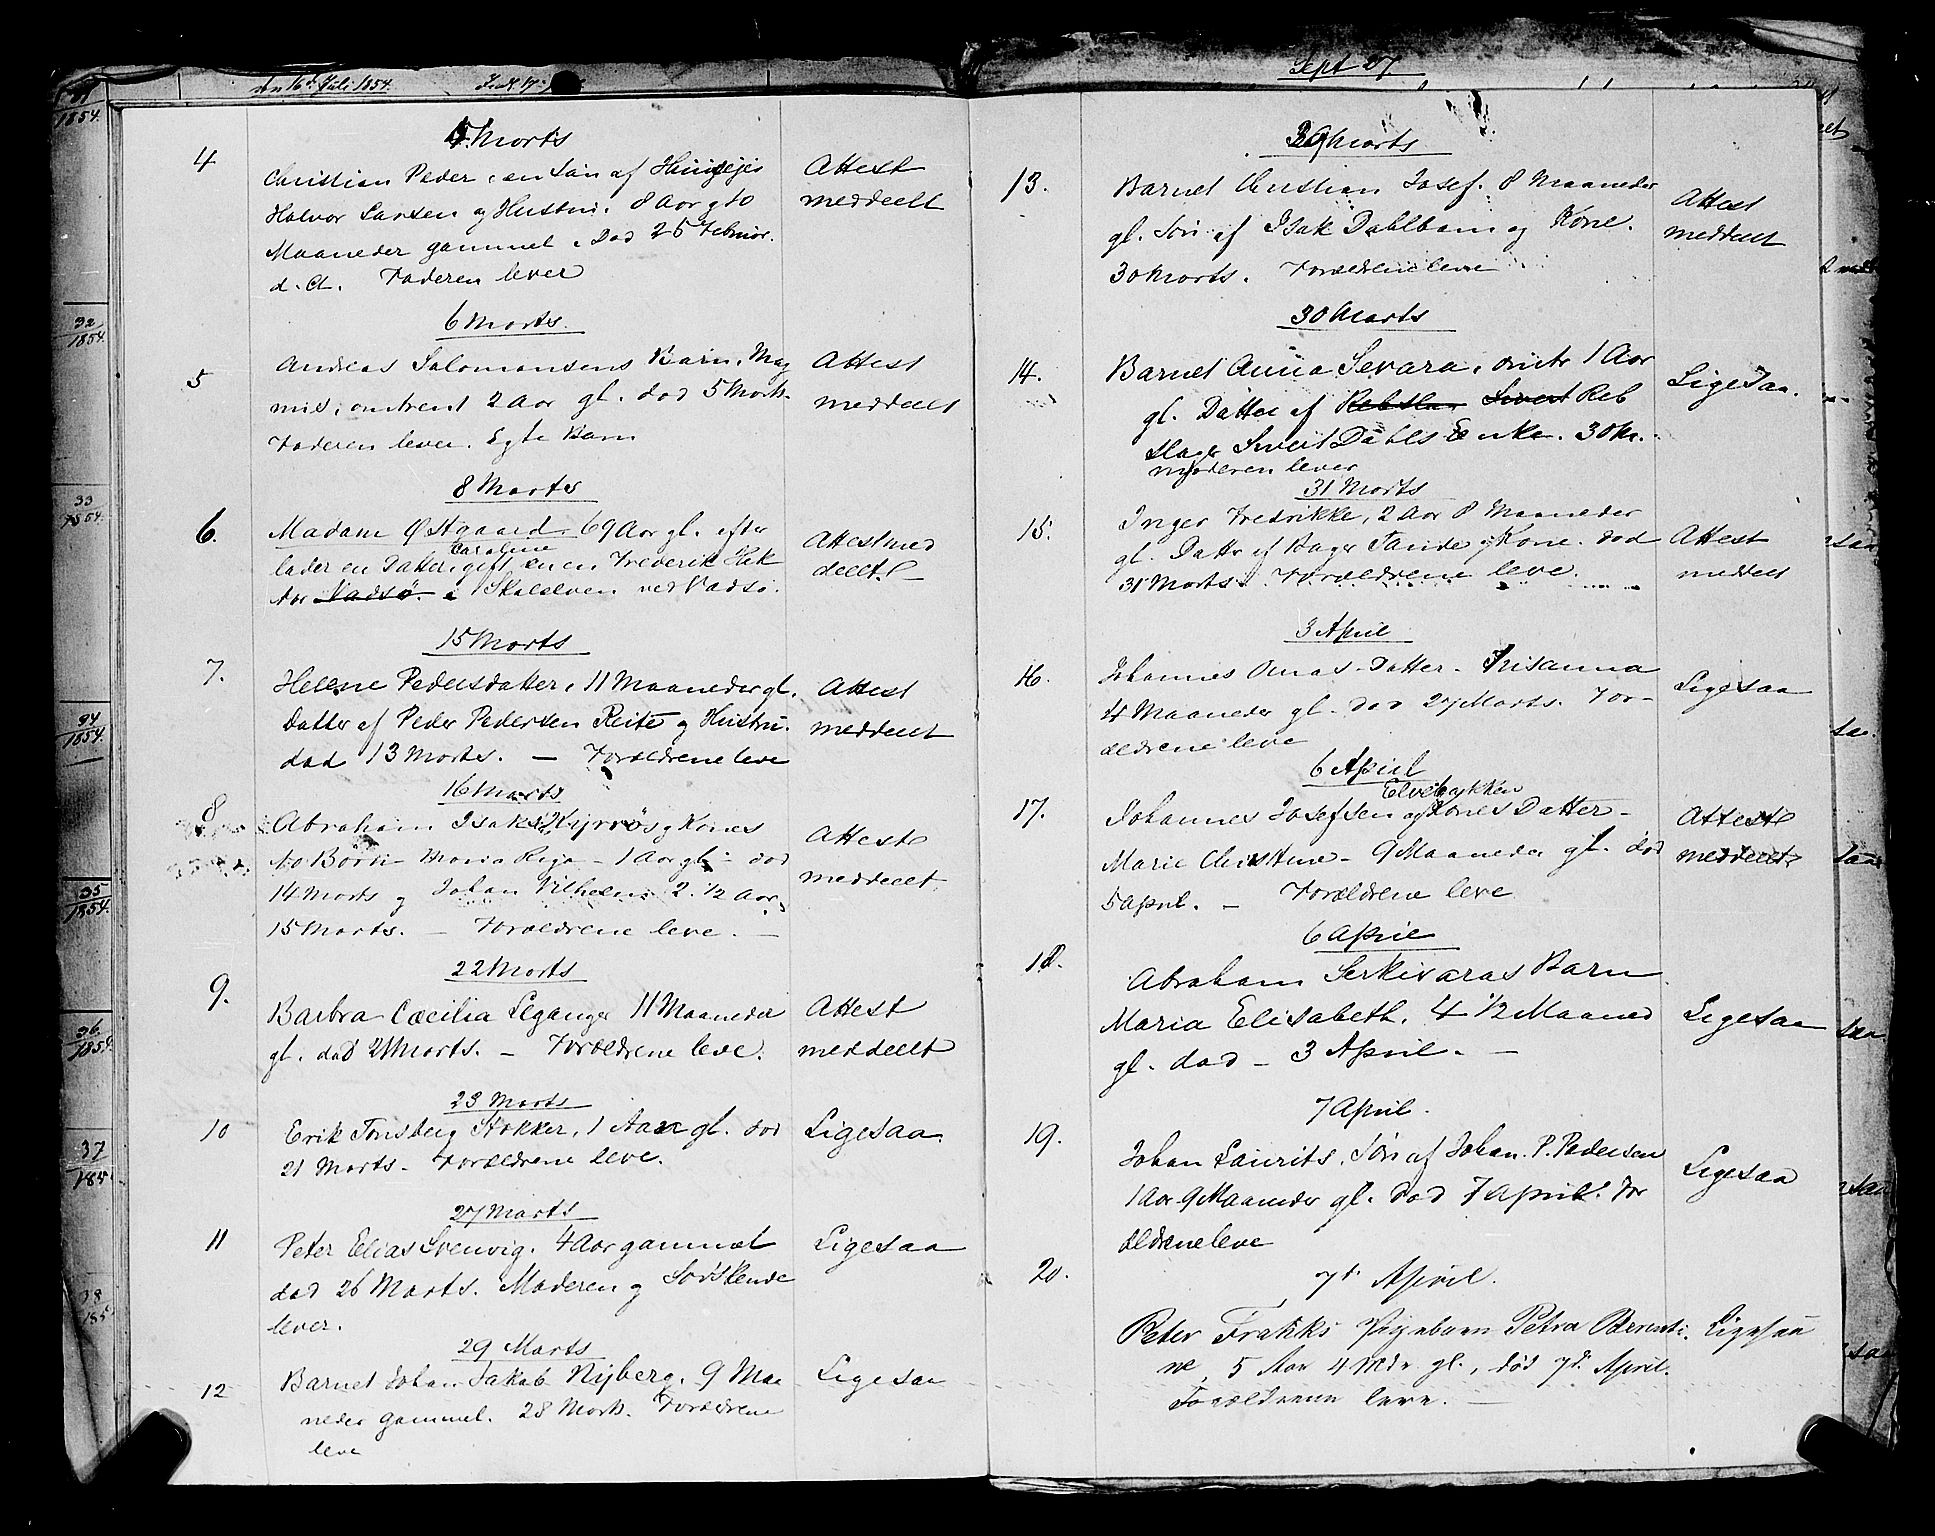 den 16de Juli 1854.
1854.
4 Morts
4
Christian Peder, en Søn af
Halvor Larsen og Hustru. 8 Aar gto
Maaneder gammel. Død 25 Februar.
d. A. Faderen lever
Attest
meddeelt
6 Morts.
5
Andreas Salomonsens Barn, Mag
nus, omtrent 2 Aar gl. død 5 Morts.
Faderen lever. Egte Barn
Attest
meddeelt
8 Morts
6.
Madam Østgaard, 69 Aar gl. efter
Caroline
lader en Datter, gift en Frederik Hek
tor Vadsø. i Skalelven ved Vadsø.
Attest med
deelt.
15 Morts
7.
Helene Pedersdatter, 11 Maaneder gl.
Datter af Peder Pedersen Reite og Hustru.
død 13 Morts. — Forældrene leve
Attest
meddeelt
16 Morts
8
Abraham Isaks Kyrrös og Kones
to Børn Maria Riga - 1 Aar gl - død
14 Morts og Johan Vilhelm 2. 1/2 Aar,
15 Morts. — Forældrene leve. —
Attest
meddeelt
22 Morts
9.
Barbra Cæcilia Leganger 11 Maaneder
gl. død 21 Morts. — Forældrene leve.
Attest
meddeelt
23 Morts
10
Erik Tønsberg Stokker, 1 Aar gl. død
21 Morts - Forældrene leve.
Ligesaa
27 Marts
11
Peter Elias Svenvig. 4 Aar gammel
død 26 Marts. Moderen og Søskende
lever.
Ligesaa
29 Marts
12
Barnet Johan Jakob Nyberg. 9 Maa
neder gammel. 28 Morts. Forældrene
leve
Ligesaa
32
1854.
33
1854.
34
1854.
35
1854.
36.
1854.
37
185
38
185
Sept 27
29 Marts
13.
Barnet Christian Josef. 8 Maaneder
gl. Søn af Isak Dahlbom og Kone.
30 Morts. Forældrene leve
Attest
meddeelt
30 Marts
14.
Barnet Anna Sevara, omtr 1 Aar
gl. Datter af Rebslar Sivert Reb
slager Sivert Dahls Enke. 30 M.
moderen lever
Ligesaa.
31 Morts
15.
Inger Fredrikke, 2 Aar 8 Maaneder
gl. Datter af Bager Tande og Kone. død
31 Morts. Forældrene leve.
Attest
meddeelt
3 April
16.
Johannes Omas Datter - Susanna
4 Maaneder gl. død 27 Marts. For-
ældrene leve
Ligesaa
6 April
Elvebakken
17.
Johannes Josefsen og Kones Datter -
Marie Christine - 9 Maaneder gl. død
5 April. — Forældrene leve
Attest
meddeelt
6 April
18.
Abraham Serkivaras Barn
Maria Elisabeth. 4 1/2 Maaned
gl. død - 3 April. —
Ligesaa
7 April.
19.
Johan Laurits, Søn af Johan P. Pedersen
1 Aar 9 Maaneder gl. død 7 April. For
ældrene leve
Ligesaa
20.
7d. April.
Peter Frakks Pigebarn Petra Berenti-
ne, 5 Aar 4 Mdr. gl., død 7d. April.
Forældrene leve. —
Ligesaa